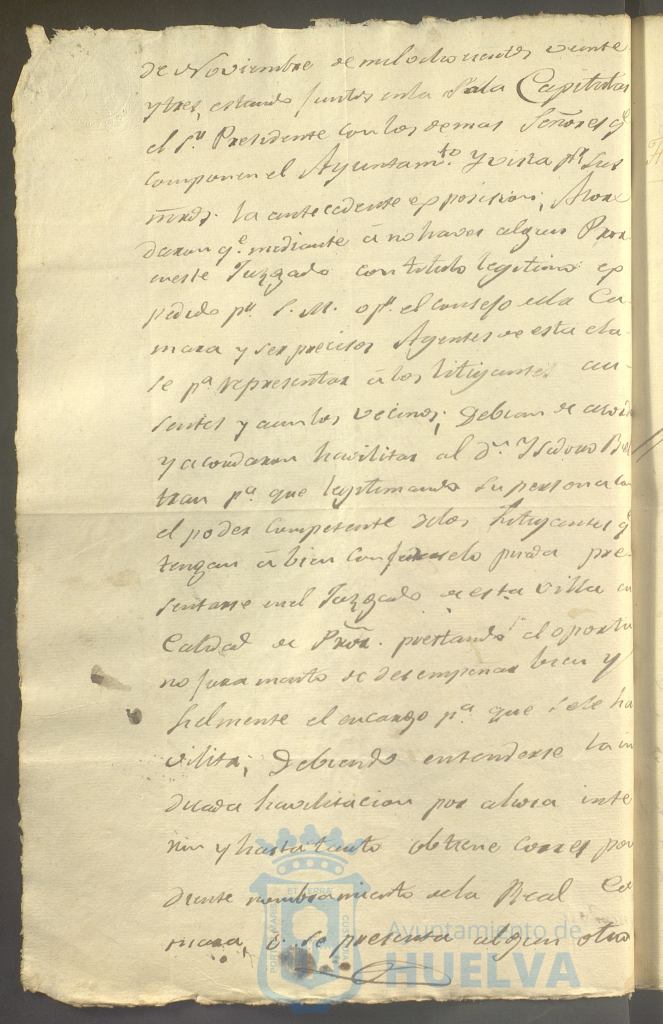 de Noviembre de mil ochocientos veinte
y tres, estando juntos en la Sala Capitular
el Sr. Presidente con los demas Señores q.
componen el Ayuntamto. y vista pr. sus
mrds. la antecedente exposicion; Acor
daron qe. mediante à no haver algun Pror
en este Juzgado con titulo legitimo ex
pedido pr. S. M. o pr. el consejo de la Ca
mara y ser precisos Agentes de esta cla
se pa. representar à los litigantes au
sentes y aun los vecinos; Debian de
y acordaron havilitar al Dn. Ysidoro Bel
tran pa. que legitimando su persona con
el poder competente de los Litigantes q.
tengan à bien conferirselo pueda pre
sentarse en el Juzgado de esta villa en
Calidad de Pror. prestando el oportu
no juramento de desempeñar bien y
fielmente el encargo pa. que se le ha
vilita; Debiendo entenderse la in
dicada havilitacion por ahora inte
rin y hasta tanto obtiene corres pon
diente nombramiento de la Real Ca
mara, o se presenta algun otro
PORTUS MARIS ET TERRAE CUSTODIA
Ayuntamiento de
HUELVA